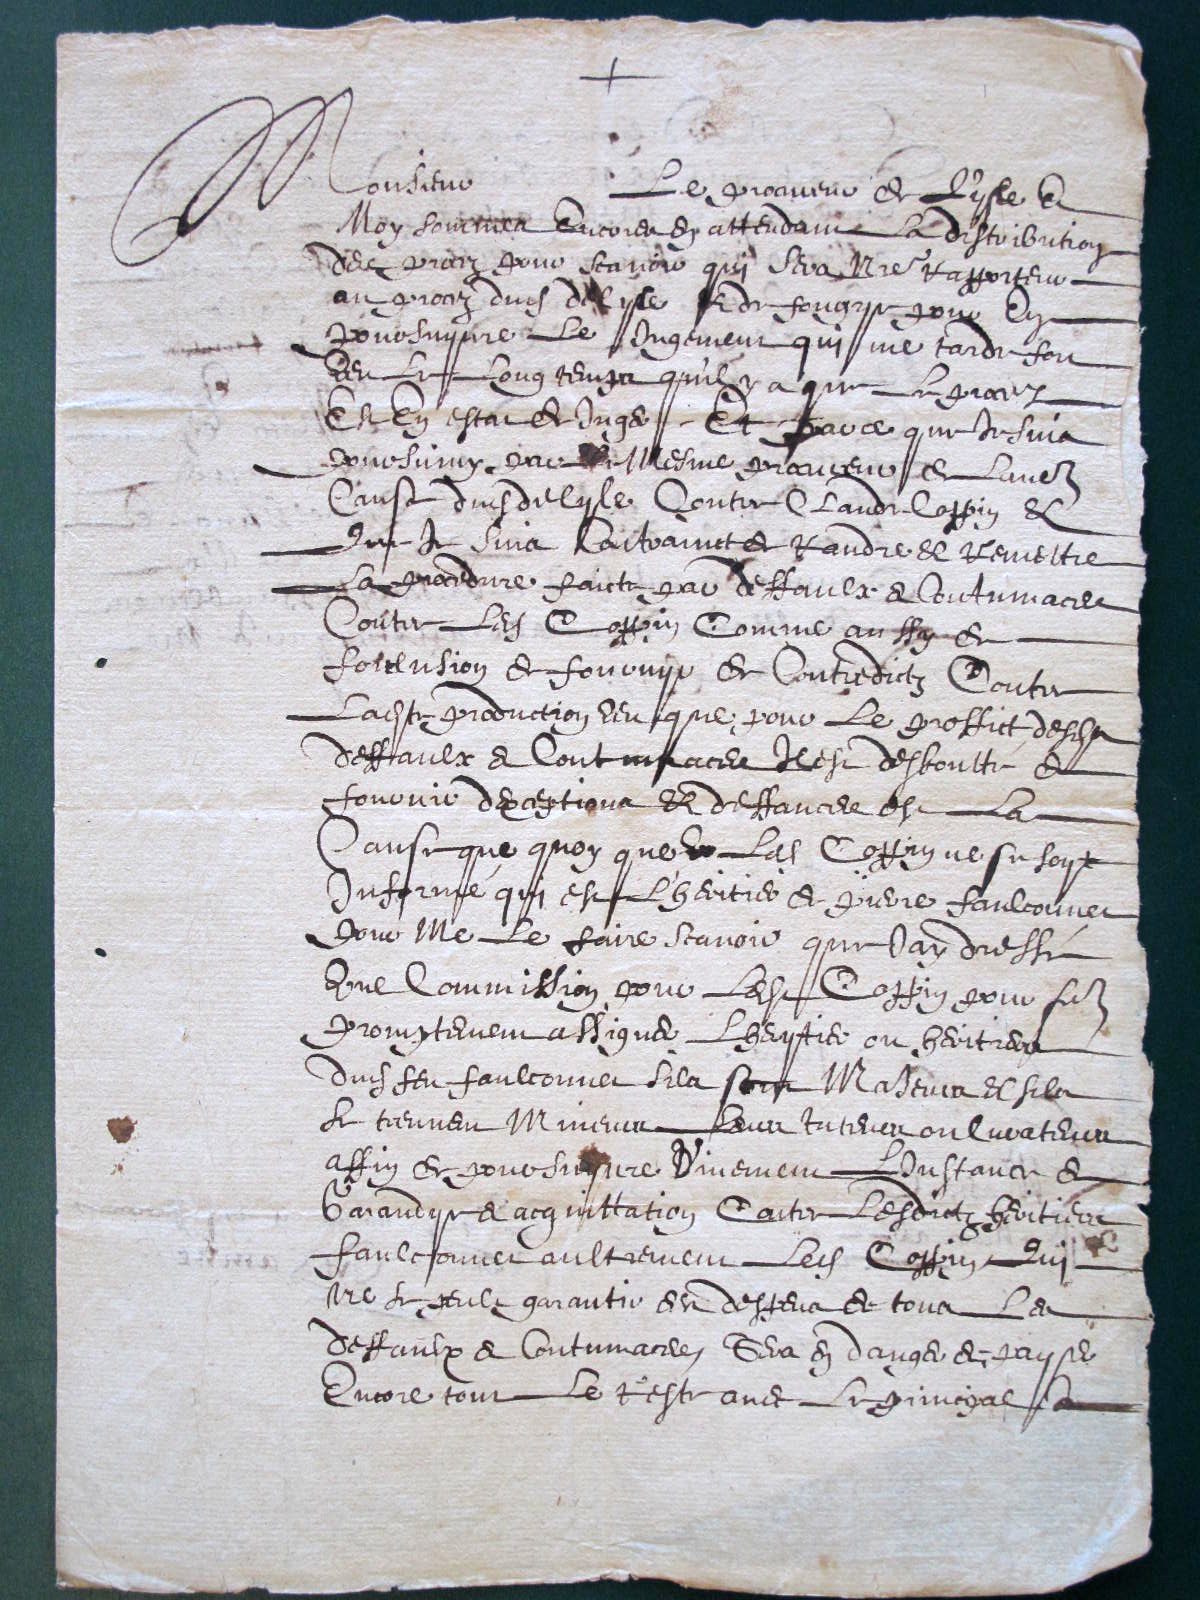 Monsieur Le procureur de Lysle Et
Moy sommes Encores en attendant La distribution
des procez pour scauoir qui sera Nre Rapporteur
au procez dud delysle Et de pour En
poursuyure Le Jugement qui me tarde fort
veu Le Long temps quil y a que Le procez
Est En estat de Juger Et parce que Je suis
poursuiuy par Le Mesme procureur de
Cause dud delysle Contre Claude Coppin Et
Que Je suis Contrainct de Randre Et Remettre
La procedure faicte par deffaulx & Contumaces
Contre Led Coppin Comme aussy de
forclusion de fournyr de Contredictz Contre
Ladte production veu que pour Le proffict desd
deffaulx & Contumaces Il est desboutté de
fournir dexceptions Et deffances est La
Cause que quoy que Led Coppin ne se soyt
Informé qui est Lheritier de pierre faulconnier
pour Me Le faire scauoir que Jay dressé
Une Commission pour Led Coppin pour
promptement assigner Lherytier ou heritiers
dud feu faulconnier silz sont Majeurs et silz
se treuuent Mineurs Leurs tuteurs ou Curateurs
affin de poursuyure Viuement Linstance de
Garandye & acquittation Contre Lesdictz heritiers
faulconnier aultrement Led Coppin Qui
ne se peult garantir des despens de tous Les
deffaulx & Contumaces Sera en danger de payer
Encore tout Le Reste auec Le principal